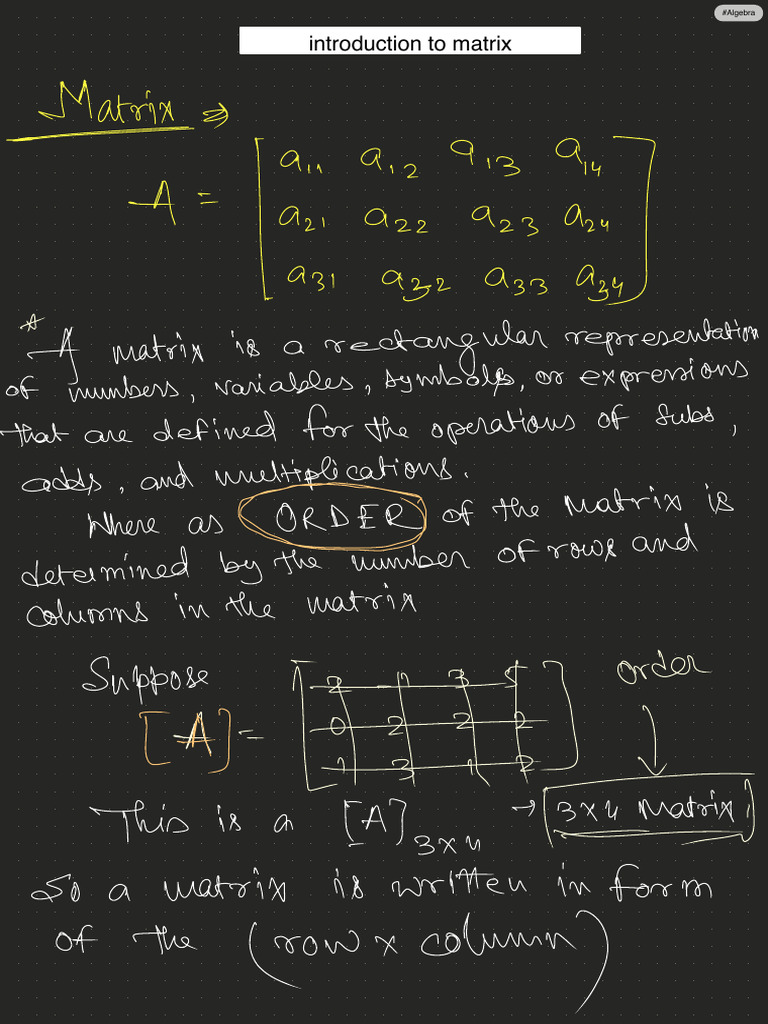 #Algebra
introduction to matrix
Matrix ⇒
A = [ a11 a12 a13 a14
a21 a22 a23 a24
a31 a32 a33 a34 ]
* A matrix is a rectangular representation
of numbers, variables, symbols, or expressions
that are defined for the operations of subs,
adds, and multiplications.
Where as ORDER of the matrix is
determined by the number of rows and
columns in the matrix
Suppose
order
[A] = [ 2 1 3 5
0 2 2 2
1 3 1 2 ]
This is a [A]3x4 → 3x4 Matrix
So a matrix is written in form
of the (row x column)